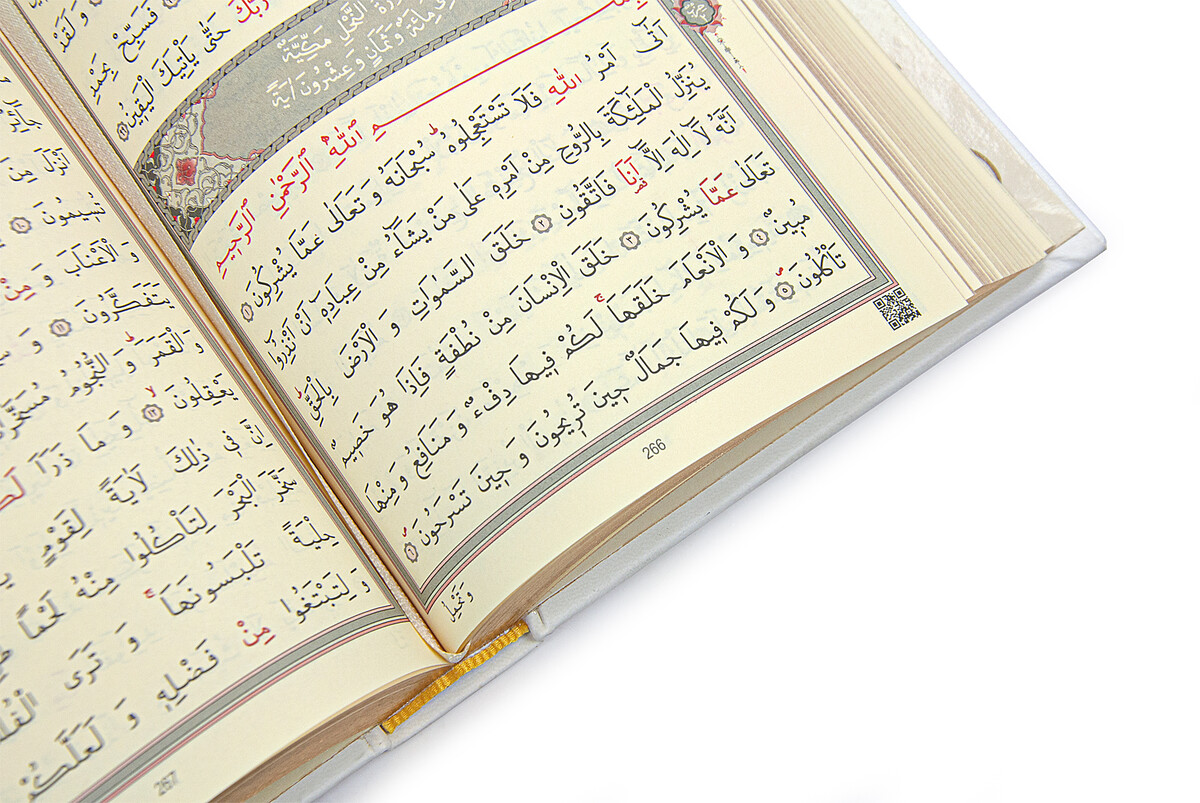 رَبَّكَ حَتّٰى يَأْتِيَكَ الْيَقِينُ ﴿٩٩﴾
سُورَةُ النَّحْلِ مَكِّيَّةٌ
وَهِىَ مِائَةٌ وَ ثَمَانٍ وَ عِشْرُونَ اٰيَةً
بِسْمِ اللّٰهِ الرَّحْمٰنِ الرَّحِيمِ
اَتٰٓى اَمْرُ اللّٰهِ فَلَا تَسْتَعْجِلُوهُۜ سُبْحَانَهُ وَ تَعَالٰى عَمَّا يُشْرِكُونَ ﴿١﴾
يُنَزِّلُ الْمَلٰٓئِكَةَ بِالرُّوحِ مِنْ اَمْرِهٖ عَلٰى مَنْ يَشَٓاءُ مِنْ عِبَادِهٖٓ اَنْ اَنْذِرُٓوا
اَنَّهُ لَٓا اِلٰهَ اِلَّٓا اَنَا۬ فَاتَّقُونِ ﴿٢﴾ خَلَقَ السَّمٰوَاتِ وَ الْاَرْضَ بِالْحَقِّۜ
تَعَالٰى عَمَّا يُشْرِكُونَ ﴿٣﴾ خَلَقَ الْاِنْسَانَ مِنْ نُطْفَةٍ فَاِذَا هُوَ خَصٖيمٌ
مُبٖينٌ ﴿٤﴾ وَ الْاَنْعَامَ خَلَقَهَاۚ لَكُمْ فٖيهَا دِفْءٌ وَ مَنَافِعُ وَ مِنْهَا
تَأْكُلُونَۖ ﴿٥﴾ وَ لَكُمْ فٖيهَا جَمَالٌ حٖينَ تُرٖيحُونَ وَ حٖينَ تَسْرَحُونَۖ ﴿٦﴾
وَ تَحْمِلُ
266
تُسٖيمُونَ ﴿١٠﴾
وَ الْاَعْنَابَ وَ مِنْ
يَتَفَكَّرُونَ ﴿١١﴾ وَ
وَ الْقَمَرَۜ وَ النُّجُومُ مُسَخَّرَاتٌ
يَعْقِلُونَۙ ﴿١٢﴾ وَ مَا ذَرَاَ
اِنَّ فٖى ذٰلِكَ لَاٰيَةً لِقَوْمٍ
سَخَّرَ الْبَحْرَ لِتَأْكُلُوا مِنْهُ لَحْمًا
حِلْيَةً تَلْبَسُونَهَاۚ وَ تَرَى
وَ لِتَبْتَغُوا مِنْ فَضْلِهٖ وَ لَعَلَّكُمْ
267